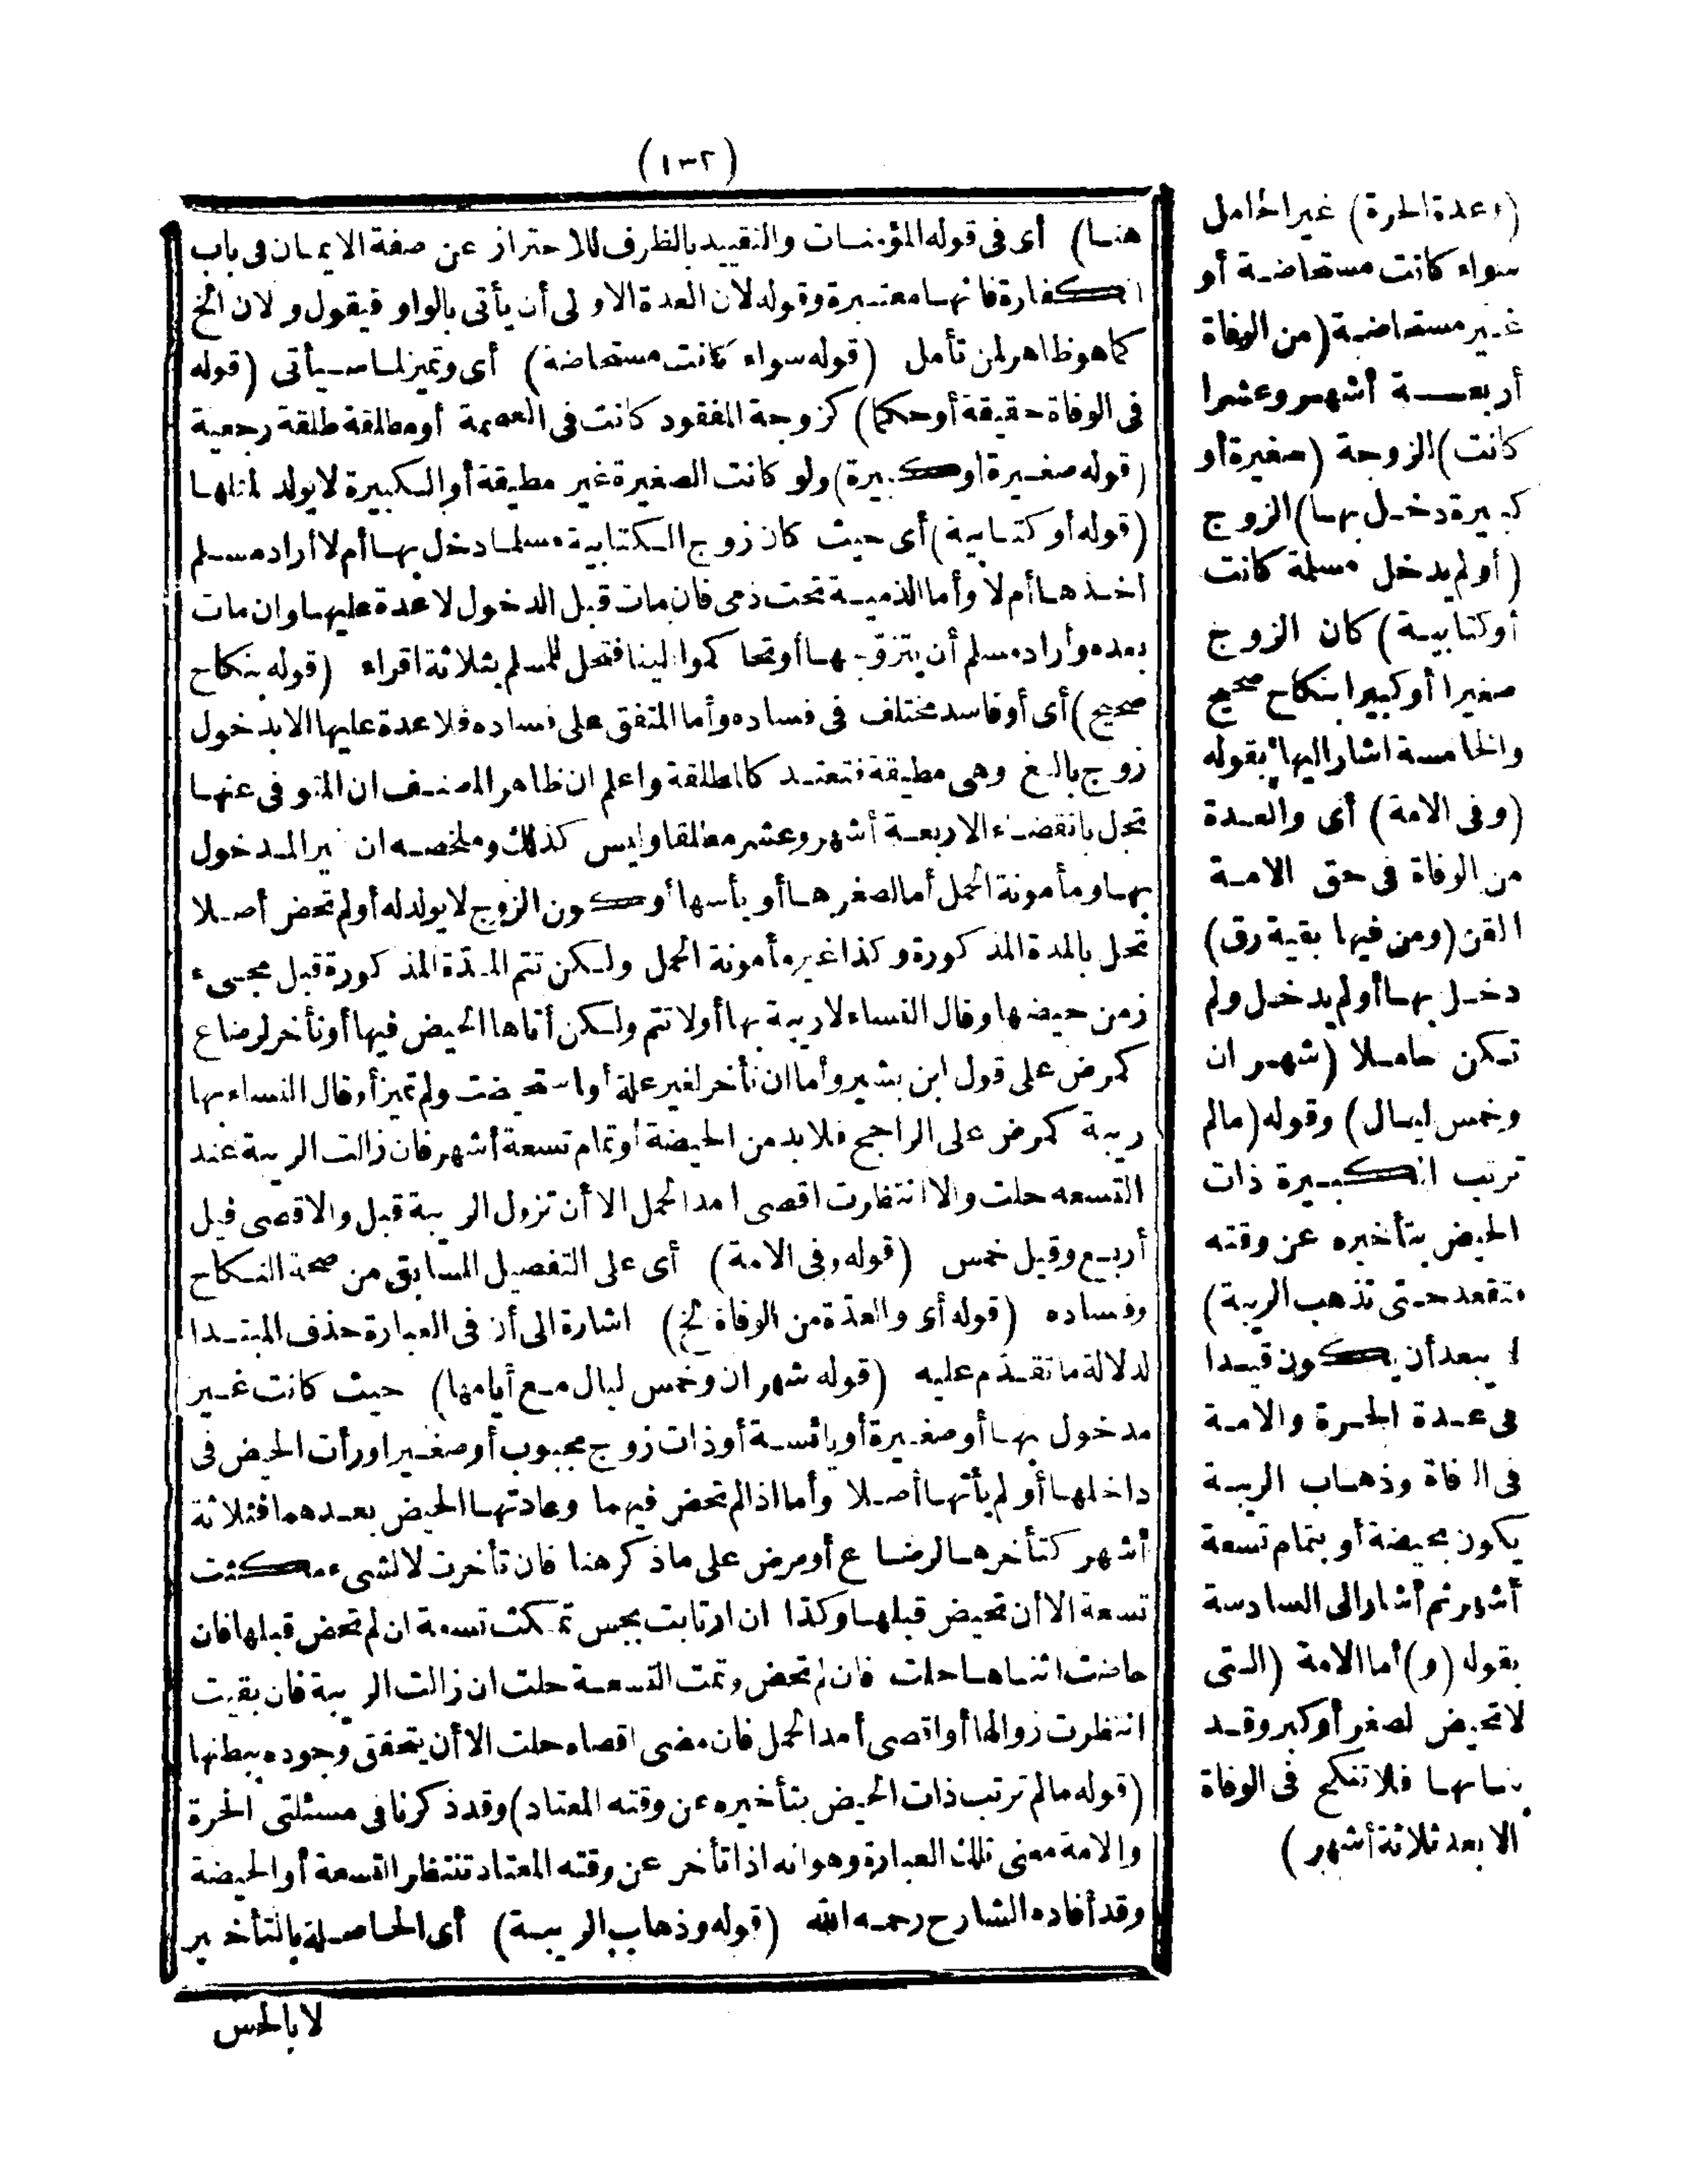 (١٣٢)
(وعدة الحرة) غير الحامل
سواء كانت مستحاضة أو
غير مستحاضة (من الوفاة
أربعة أشهر وعشرا
كانت) الزوجة (صغيرة أو
كبيرة دخل بها) الزوج
(أو لم يدخل مسلمة كانت
أو كتابية) كان الزوج
صغيرا أو كبيرا بنكاح صحيح
والخامسة أشار اليها بقوله
(وفى الامة) أى والعدة
من الوفاة فى حق الامة
القن (ومن فيها بقية رق)
دخل بها أو لم يدخل ولم
تكن حاملا (شهران
وخمس ليال) وقوله (مالم
ترتب الكبيرة ذات
الحيض بتأخيره عن وقته
فتقعد حتى تذهب الريبة)
لا يبعد أن يكون قيدا
فى عدة الحرة والامة
فى الوفاة وذهاب الريبة
يكون بحيضة أو بتمام تسعة
أشهر ثم أشار الى السادسة
بقوله (و) أما الامة (التى
لا تحيض لصغر أو كبر وقد
بنى بها فلا تنكح فى الوفاة
الا بعد ثلاثة أشهر)
هنا) أى فى قوله المؤمنات والتقييد بالظرف للاحتراز عن صفة الايمان فى باب
الكفارة فانها معتبرة وقوله لان العدة الاولى أن يأتى بالواو فيقول ولان الخ
كما هو ظاهر لمن تأمل (قوله سواء كانت مستحاضة) أى وتميز لما سيأتى (قوله
فى الوفاة حقيقة أو حكما) كزوجة المفقود كانت فى العصمة أو مطلقة طلقة رجعية
(قوله صغيرة أو كبيرة) ولو كانت الصغيرة غير مطيقة أو الكبيرة لا يولد لمثلها
(قوله أو كتابية) أى حيث كان زوج الكتابية مسلما دخل بها أم لا أراد مسلم
أخذها أم لا وأما الذمية تحت ذمى فان مات قبل الدخول لا عدة عليها وان مات
بعده وأراد مسلم أن يتزوّجها أو تحاكموا الينا فتحل للمسلم بثلاثة اقراء (قوله بنكاح
صحيح) أى أو فاسد مختلف فى فساده وأما المتفق على فساده فلا عدة عليها الا بدخول
زوج بالغ وهى مطيقة فتعتد كالمطلقة واعلم ان ظاهر المصنف ان المتوفى عنها
تحل بانقضاء الاربعة أشهر وعشر مطلقا وليس كذلك وملخصه ان غير المدخول
بها ومأمونة الحمل أما لصغرها أو يأسها أو كون الزوج لا يولد له أو لم تحض أصلا
تحل بالمدة المذكورة وكذا غير مأمونة الحمل ولكن تتم المدّة المذكورة قبل مجىء
زمن حيضها وقال النساء لا ريبة بها أو لا تتم ولكن أتاها الحيض فيها أو تأخر لرضاع
كمرض على قول ابن بشير وأما ان تأخر لغير علة أو استحيضت ولم تميز أو قال النساء بها
ريبة كمرض على الراجح فلا بد من الحيضة أو تمام تسعة أشهر فان زالت الريبة عند
التسعه حلت والا انتظرت اقصى امد الحمل الا أن تزول الريبة قبل والاقصى قيل
أربع وقيل خمس (قوله وفى الامة) أى على التفصيل السابق من صحة النكاح
وفساده (قوله أى والعدّة من الوفاة الخ) اشارة الى أن فى العبارة حذف المبتدا
لدلالة ما تقدّم عليه (قوله شهران وخمس ليال مع أيامها) حيث كانت غير
مدخول بها أو صغيرة أو يائسة أو ذات زوج مجبوب أو صغير او رأت الحيض فى
داخلها أو لم يأتها أصلا وأما اذا لم تحض فيهما وعادتها الحيض بعدهما فثلاثة
أشهر كتأخرها لرضاع أو مرض على ما ذكر هنا فان تأخرت لا لشىء مكثت
تسعة الا أن تحيض قبلها وكذا ان ارتابت بجس تمكث تسعة ان لم تحض قبلها فان
حاضت اثناءها حلت فان لم تحض وتمت التسعة حلت ان زالت الريبة فان بقيت
انتظرت زوالها أو اقصى أمد الحمل فان مضى اقصاه حلت الا أن يتحقق وجوده ببطنها
(قوله مالم ترتب ذات الحيض بتأخيره عن وقته المعتاد) وقد ذكرنا فى مسئلتى الحرة
والامة معنى تلك العبارة وهو انه اذا تأخر عن وقته المعتاد تنتظر التسعة أو الحيضة
وقد أفاده الشارح رحمه الله (قوله وذهاب الريبة) أى الحاصلة بالتأخير
لا بالحس